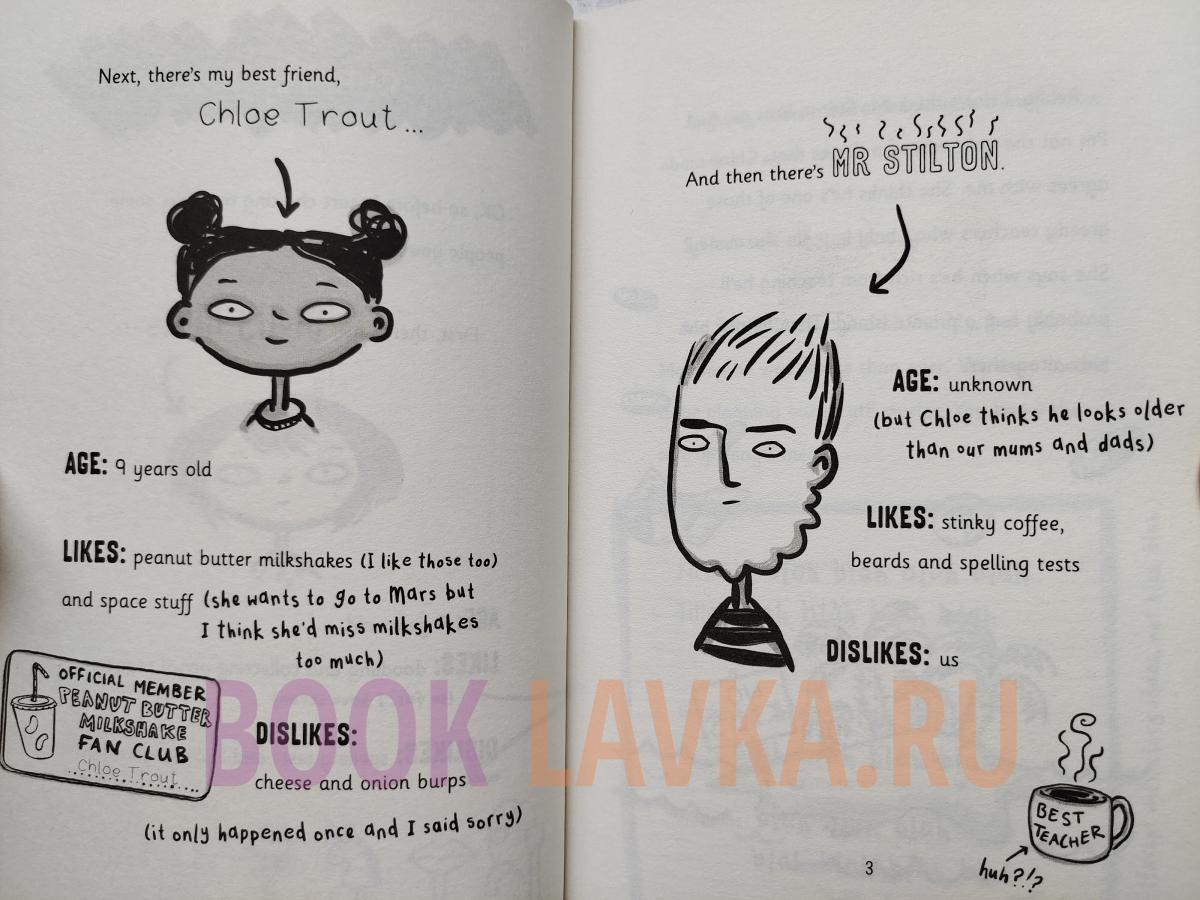 Next, there's my best friend,
Chloe Trout...
AGE: 9 years old
LIKES: peanut butter milkshakes (I like those too)
and space stuff (she wants to go to Mars but
I think she'd miss milkshakes
too much)
OFFICIAL MEMBER
PEANUT BUTTER
MILKSHAKE
FAN CLUB
Chloe Trout
DISLIKES:
cheese and onion burps
(it only happened once and I said sorry)
And then there's MR STILTON.
AGE: unknown
(but Chloe thinks he looks older
than our mums and dads)
LIKES: stinky coffee,
beards and spelling tests
DISLIKES: us
BEST
TEACHER
huh?!?
3
BOOK LAVKA.RU